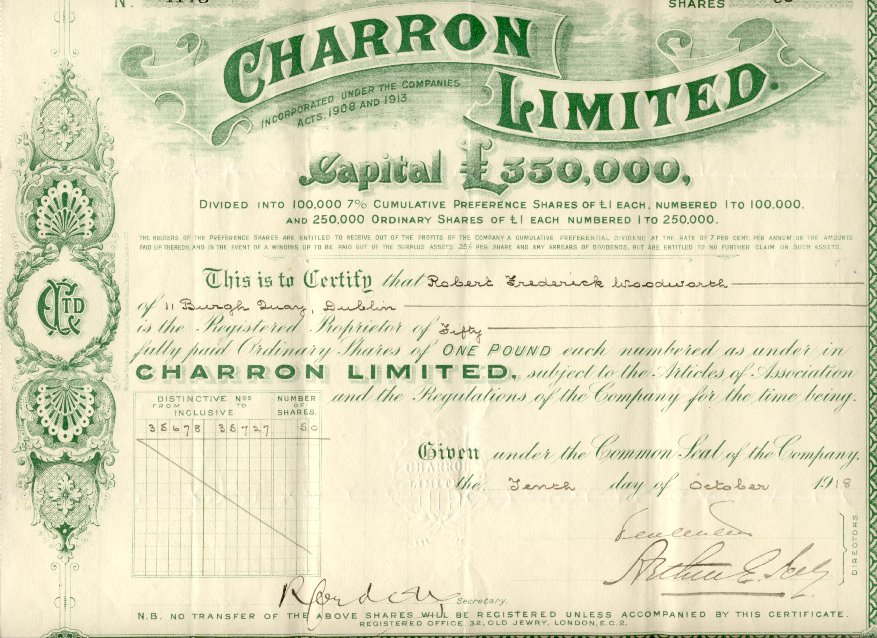 SHARES
CHARRON
LIMITED.
INCORPORATED UNDER THE COMPANIES
ACTS, 1908 AND 1913.
Capital £350,000,
DIVIDED INTO 100,000 7% CUMULATIVE PREFERENCE SHARES OF £1 EACH, NUMBERED 1 TO 100,000,
AND 250,000 ORDINARY SHARES OF £1 EACH NUMBERED 1 TO 250,000.
THE HOLDERS OF THE PREFERENCE SHARES ARE ENTITLED TO RECEIVE OUT OF THE PROFITS OF THE COMPANY A CUMULATIVE PREFERENTIAL DIVIDEND AT THE RATE OF 7 PER CENT. PER ANNUM ON THE AMOUNTS
PAID UP THEREON, AND IN THE EVENT OF A WINDING UP TO BE PAID OUT OF THE SURPLUS ASSETS, 25/- PER SHARE AND ANY ARREARS OF DIVIDENDS, BUT ARE ENTITLED TO NO FURTHER CLAIM ON SUCH ASSETS.
This is to Certify that Robert Frederick Woodworth
of 11 Burgh Quay, Dublin
is the Registered Proprietor of Fifty
fully paid Ordinary Shares of ONE POUND each numbered as under in
CHARRON LIMITED, subject to the Articles of Association
and the Regulations of the Company for the time being.
DISTINCTIVE Nos
FROM TO
INCLUSIVE
NUMBER
OF
SHARES.
35678 35727 50
Given under the Common Seal of the Company,
the Tenth day of October 1918
CHARRON
LIMITED
CLTD
DIRECTORS
Secretary.
N.B. NO TRANSFER OF THE ABOVE SHARES WILL BE REGISTERED UNLESS ACCOMPANIED BY THIS CERTIFICATE.
REGISTERED OFFICE 32, OLD JEWRY, LONDON, E.C.2.